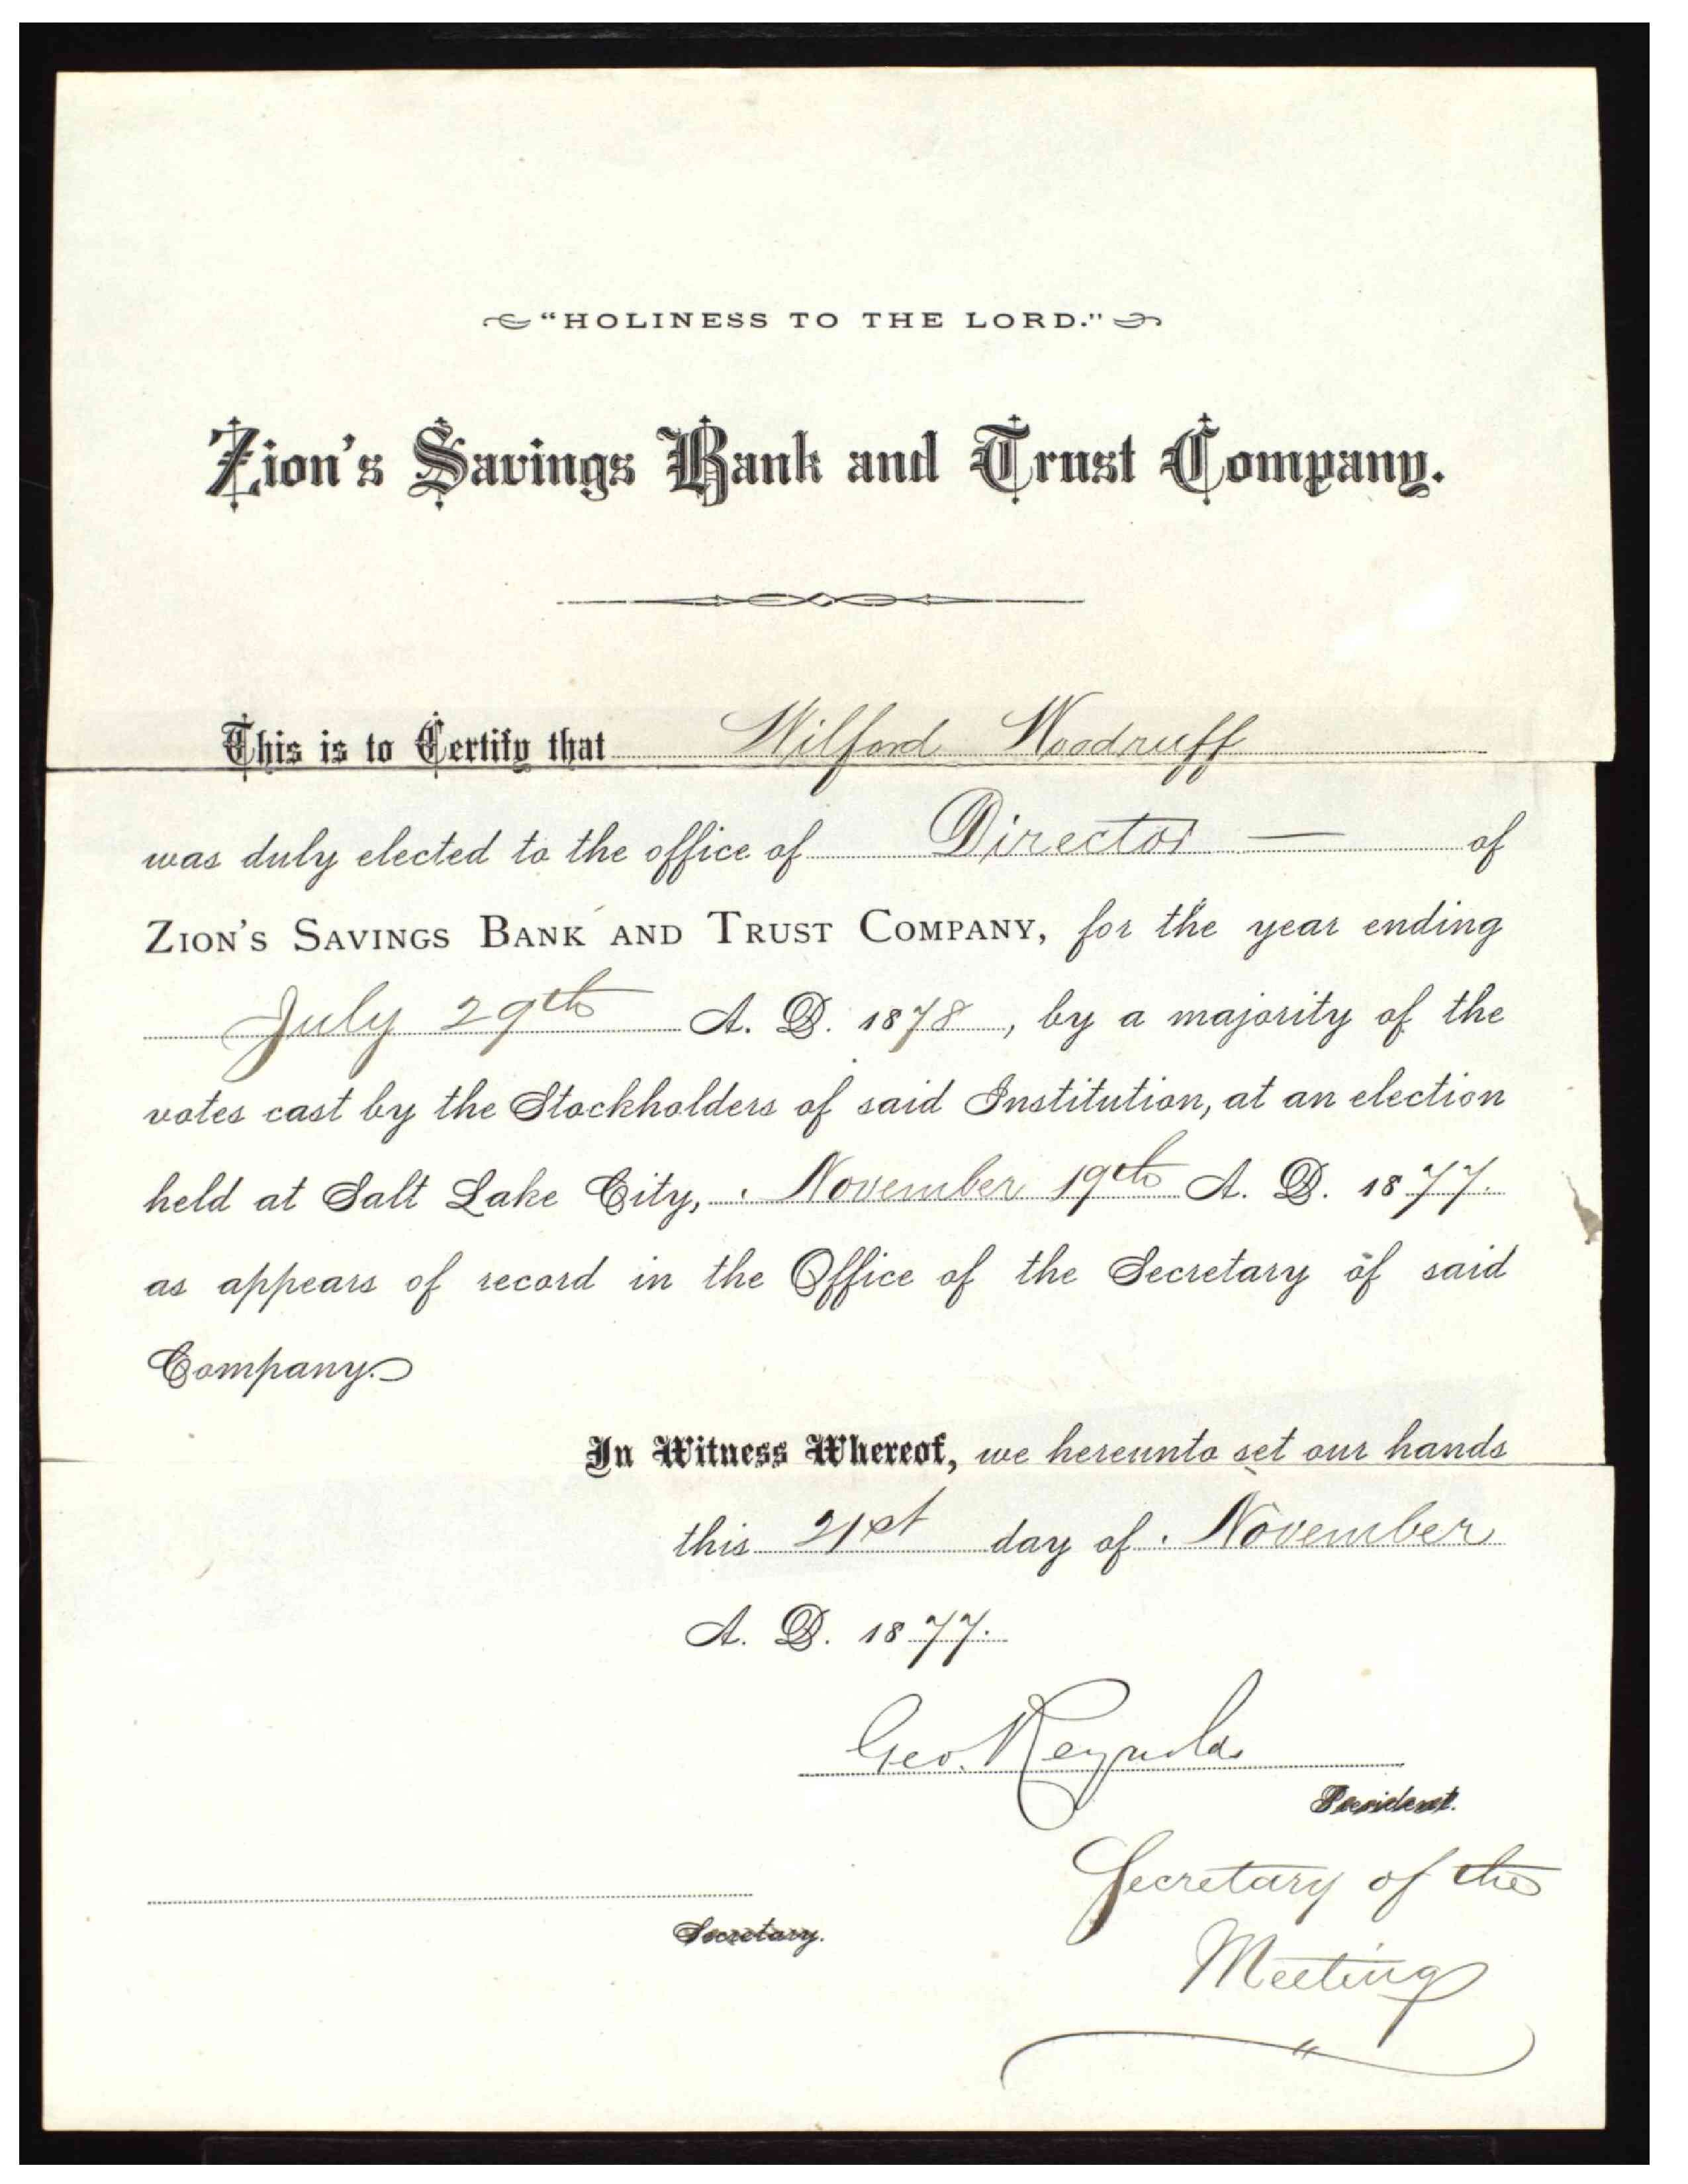 "HOLINESS TO THE LORD."
Zion's Savings Bank and Trust Company.
This is to Certify that Wilford Woodruff
was duly elected to the office of Director — of
ZION'S SAVINGS BANK AND TRUST COMPANY, for the year ending
July 29th A. D. 1878, by a majority of the
votes cast by the Stockholders of said Institution, at an election
held at Salt Lake City, November 19th A. D. 1877.
as appears of record in the Office of the Secretary of said
Company.
In Witness Whereof, we hereunto set our hands
this 21st day of November
A. D. 1877.
Geo. Reynolds
President.
Secretary of the
Secretary.
Meeting